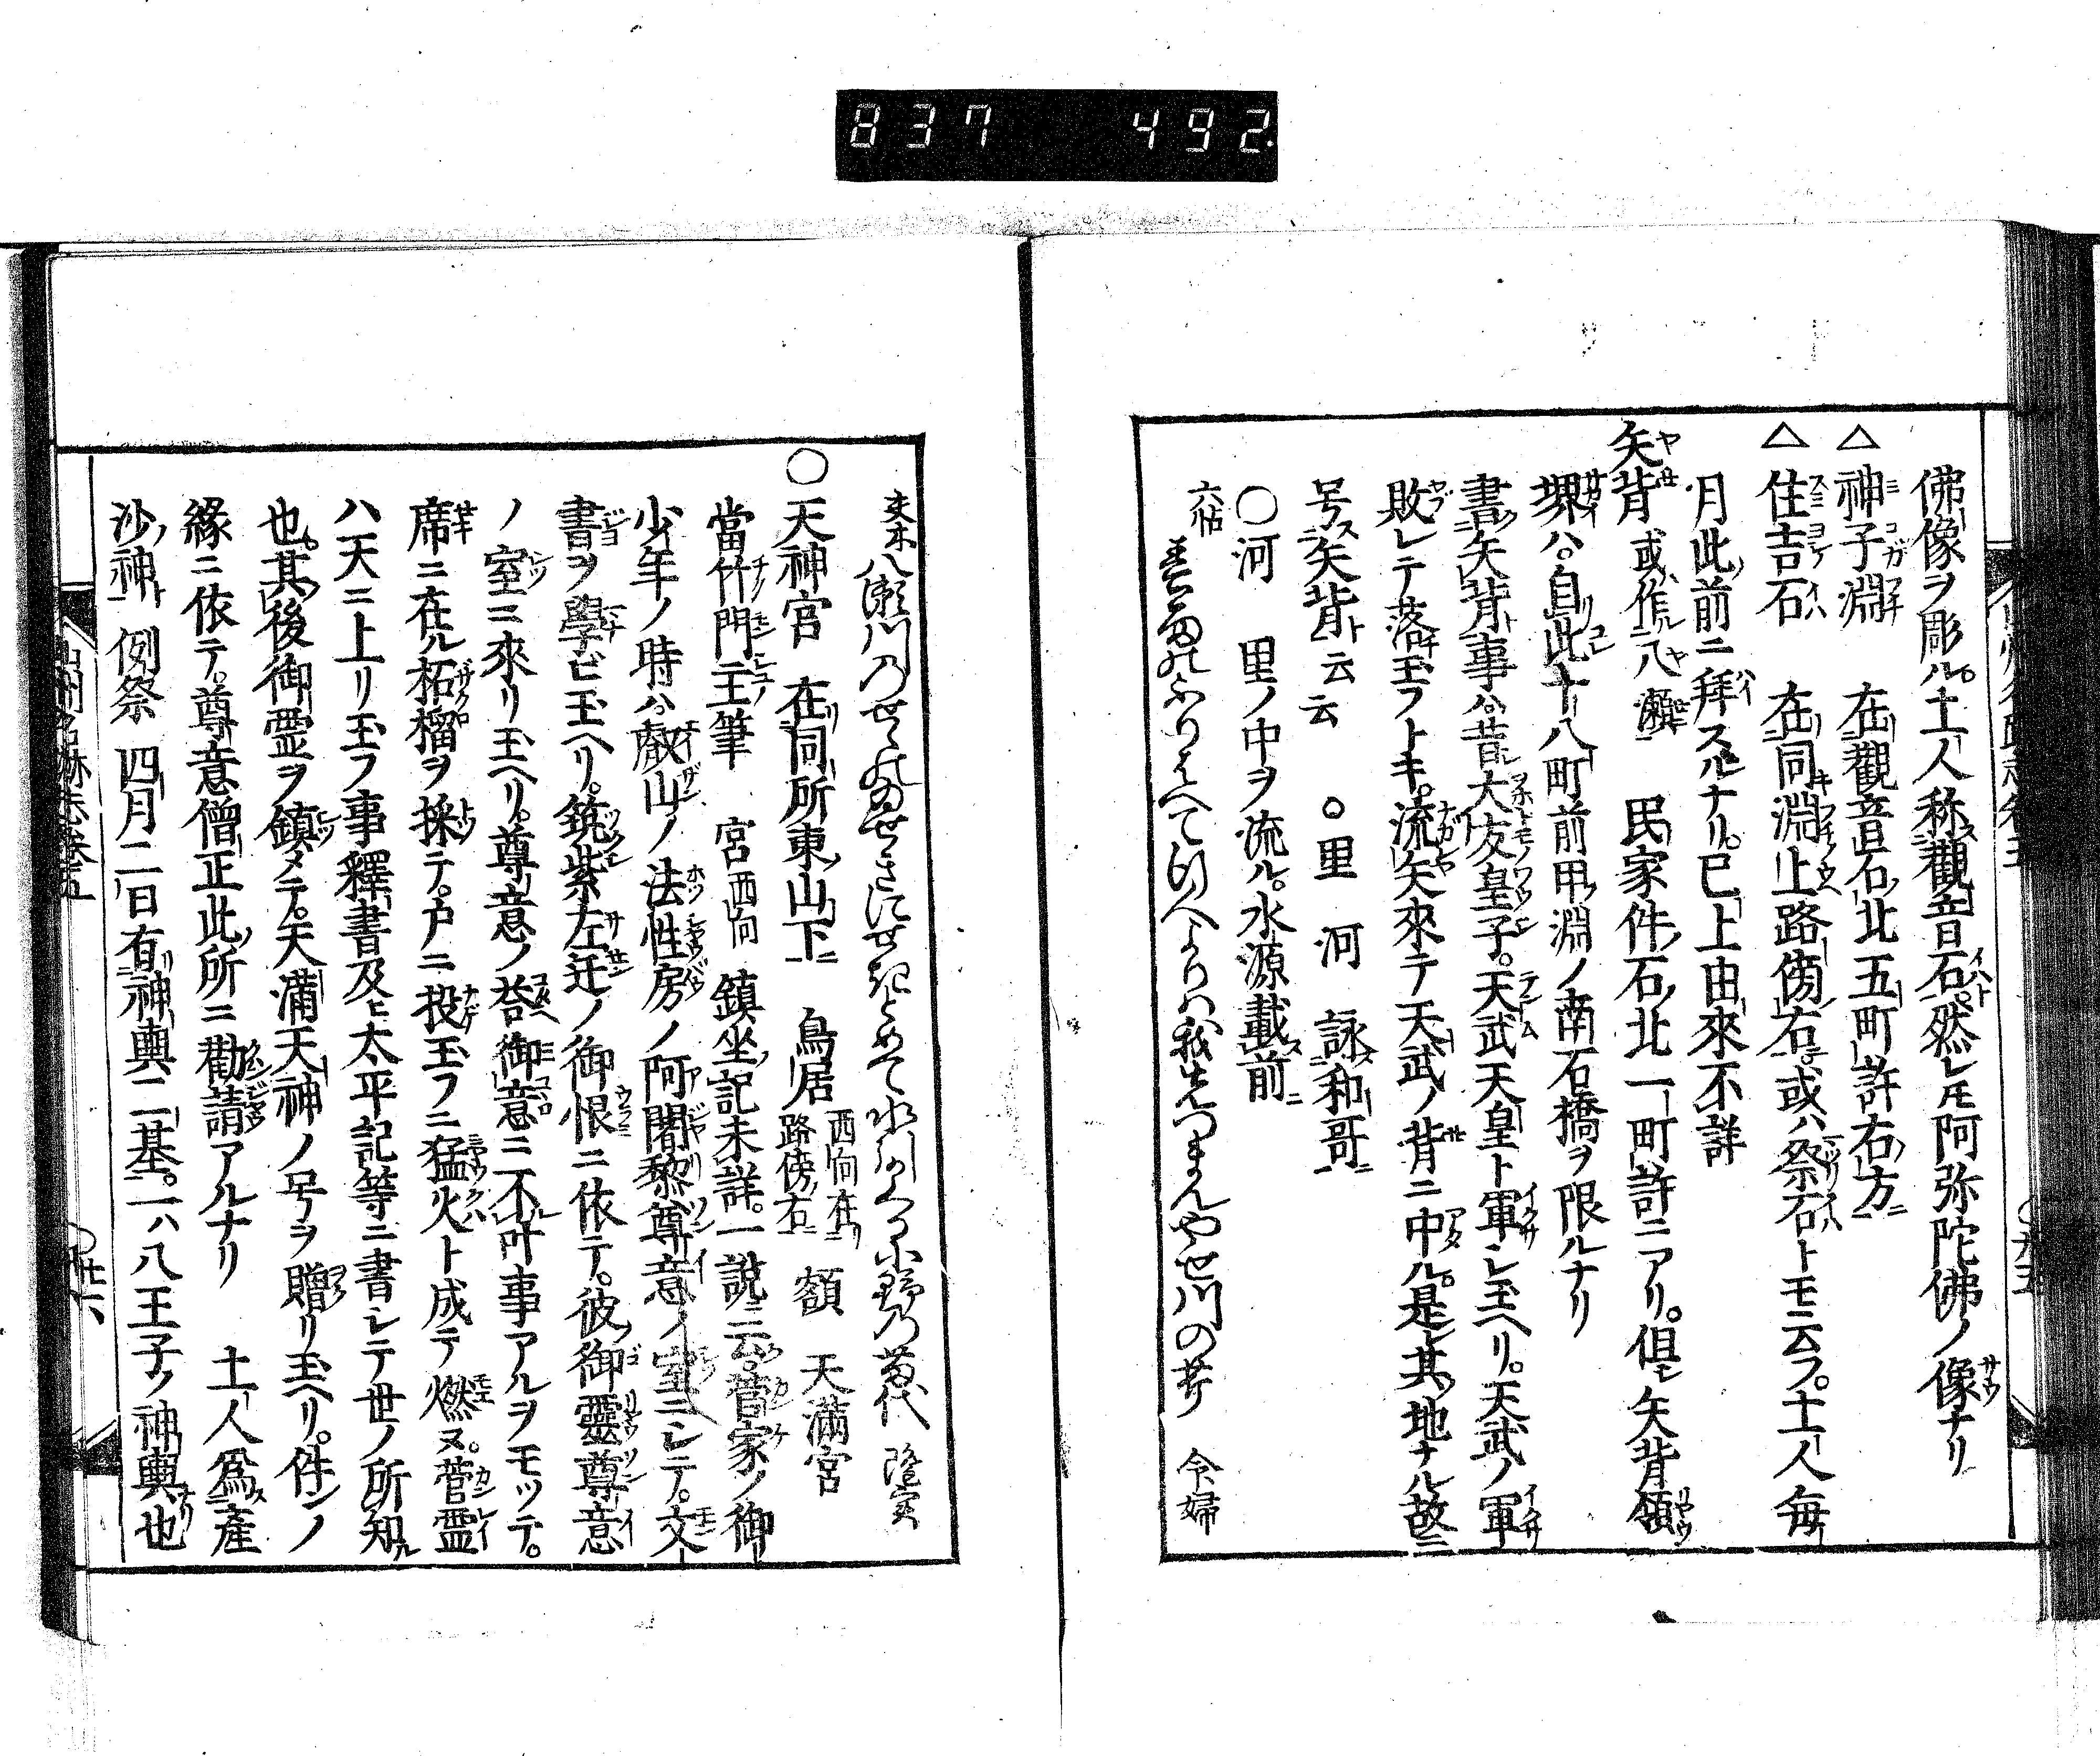 837 492.
佛像ヲ彫ル。土人称観音石。然レ𪜈阿弥陀佛ノ像ナリ
△神子淵 在觀音石北五町許右方
△住吉石 在同淵上路傍右。或ハ祭石トモ云フ。土人毎
月此前ニ拜スルナリ。已上由來不詳
矢背 或作八瀬 民家件石北一町許ニアリ。但シ矢背領
堺ハ。自此十八町前甲淵ノ南石橋ヲ限ルナリ
書矢背事ハ昔大友皇子。天武天皇ト軍シ玉ヘリ。天武ノ軍
敗レテ落玉フトキ。流矢來テ天武ノ背ニ中ル。是其地ナル故ニ
号矢背云云 ○里 河 詠和哥
○河 里ノ中ヲ流ル。水源載前
六帖
令婦
夫木
○天神宮 在同所東山下 鳥居 西向在路傍右 額 天満宮
當竹門主筆 宮西向 鎮坐記未詳。一説云。菅家ノ御
少年ノ時ハ。叡山ノ法性房ノ阿闍黎尊意ノ室ニシテ。文
書ヲ學ビ玉ヘリ。筑紫左迁ノ御恨ニ依テ。彼御靈尊意
ノ室ニ來リ玉ヘリ。尊意ノ荅御意ニ不叶事アルヲモッテ。
席ニ在ル柘榴ヲ採テ。戸ニ投玉フニ猛火ト成テ燃ヌ。菅霊
ハ天ニ上リ玉フ事釋書及ヒ太平記等ニ書シテ世ノ所知
也。其後御霊ヲ鎮メテ。天満天神ノ号ヲ贈リ玉ヘリ。件ノ
緣ニ依テ。尊意僧正此所ニ勸請アルナリ 土人爲産
沙神 例祭 四月二日有神輿二基。一ハ八王子ノ神輿也